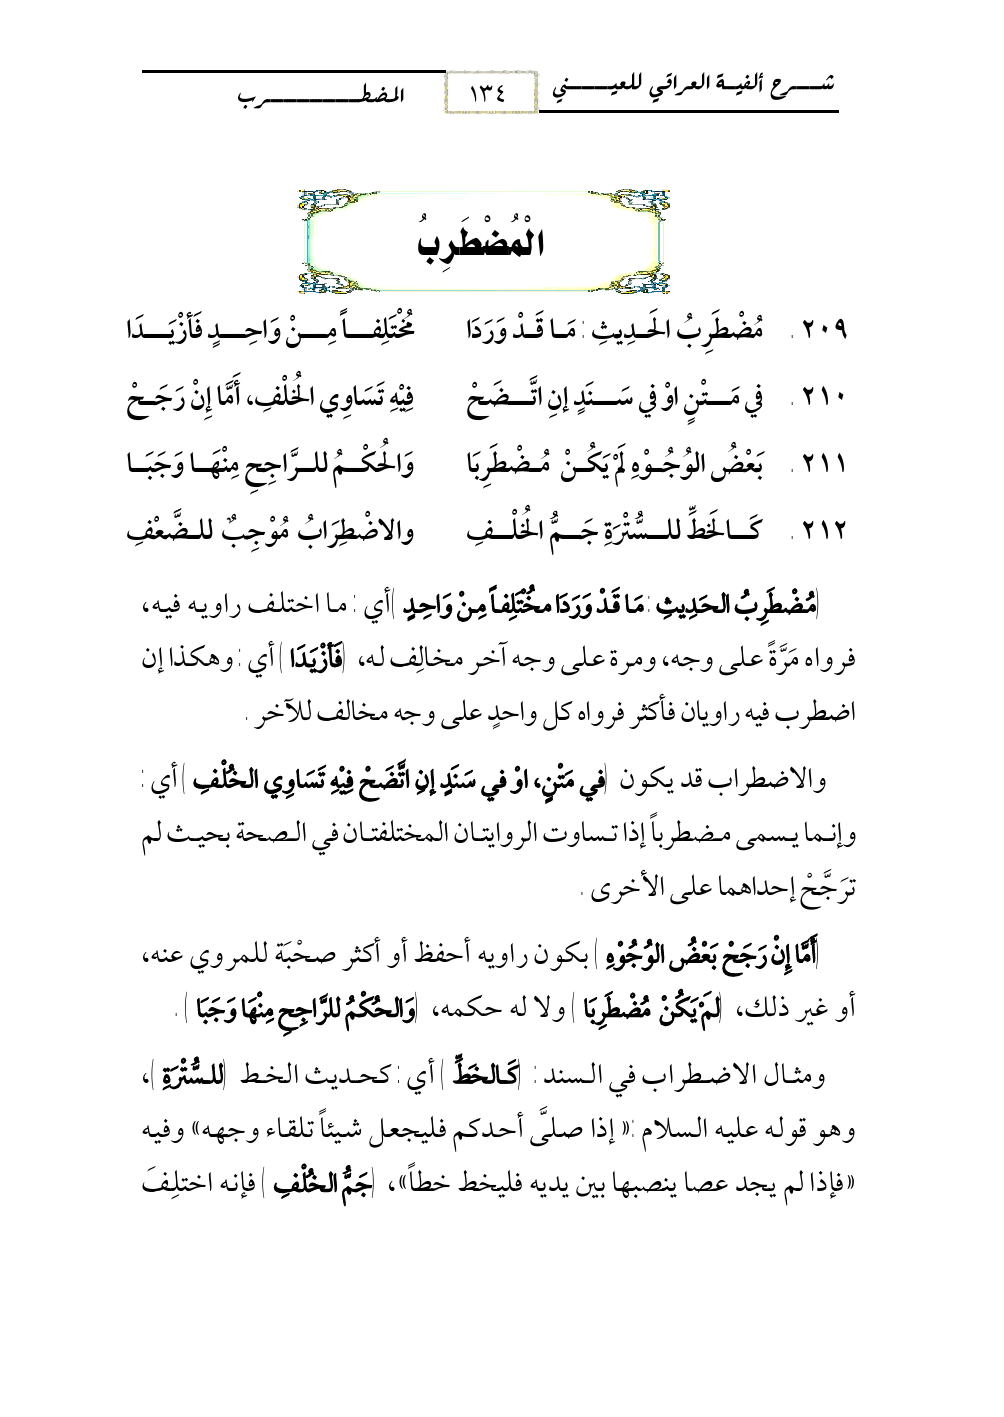 شرح ألفية العراقي للعيني ١٣٤ المضطرب
الْمُضْطَرِبُ
٢٠٩ . مُضْطَرِبُ الحَدِيثِ : مَا قَدْ وَرَدَا مُخْتَلِفاً مِنْ وَاحِدٍ فَأزْيَدَا
٢١٠ . في مَتْنٍ اوْ في سَنَدٍ إنِ اتَّضَحْ فِيْهِ تَسَاوِي الخُلْفِ، أَمَّا إِنْ رَجَحْ
٢١١ . بَعْضُ الوُجُوْهِ لَمْ يَكُنْ مُضْطَرِبَا وَالحُكْمُ للرَّاجِحِ مِنْهَا وَجَبَا
٢١٢ . كَالخَطِّ للسُّتْرَةِ جَمُّ الخُلْفِ والاضْطِرَابُ مُوْجِبٌ للضَّعْفِ
(مُضْطَرِبُ الحَدِيثِ : مَا قَدْ وَرَدَا مخُتْلِفاً مِنْ وَاحِدٍ ) أي : ما اختلف راويه فيه،
فرواه مَرَّةً على وجه، ومرة على وجه آخر مخالِف له، (فَأزْيَدَا ) أي : وهكذا إن
اضطرب فيه راويان فأكثر فرواه كل واحدٍ على وجه مخالف للآخر .
والاضطراب قد يكون (في مَتْنٍ، اوْ في سَنَدٍ إنِ اتَّضَحْ فِيْهِ تَسَاوِي الخُلْفِ ) أي :
وإنما يسمى مضطرباً إذا تساوت الروايتان المختلفتان في الصحة بحيث لم
ترَجَّحْ إحداهما على الأخرى .
(أَمَّا إِنْ رَجَحْ بَعْضُ الوُجُوْهِ ) بكون راويه أحفظ أو أكثر صحْبَة للمروي عنه،
أو غير ذلك، (لَمْ يَكُنْ مُضْطَرِبَا ) ولا له حكمه، (وَالحُكْمُ للرَّاجِحِ مِنْهَا وَجَبَا ) .
ومثال الاضطراب في السند : (كَالخَطِّ ) أي : كحديث الخط (للسُّتْرَةِ )،
وهو قوله عليه السلام :« إذا صلىَّ أحدكم فليجعل شيئاً تلقاء وجهه» وفيه
«فإذا لم يجد عصا ينصبها بين يديه فليخط خطاً»، (جَمُّ الخُلْفِ ) فإنه اختلِفَ